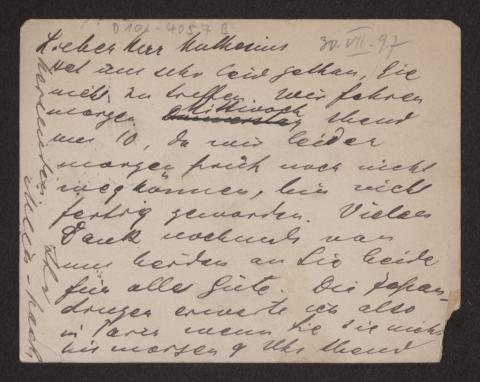 D 102-4057 B
30. VII. 97
Lieber Herr Muthesius
Hat uns sehr leid gethan, Sie
nicht zu treffen. Wir fahren
morgen Mittwoch Abend
um 10, da wir leider
morgen früh noch nicht
wegkönnen, bin nicht
fertig geworden. Vielen
Dank nochmals von
uns beiden an Sie beide
für alles Gute. Die
drucken erwarte ich also
in Paris wenn Sie sie nicht
bis morgen 9 Uhr Abend
Ihr